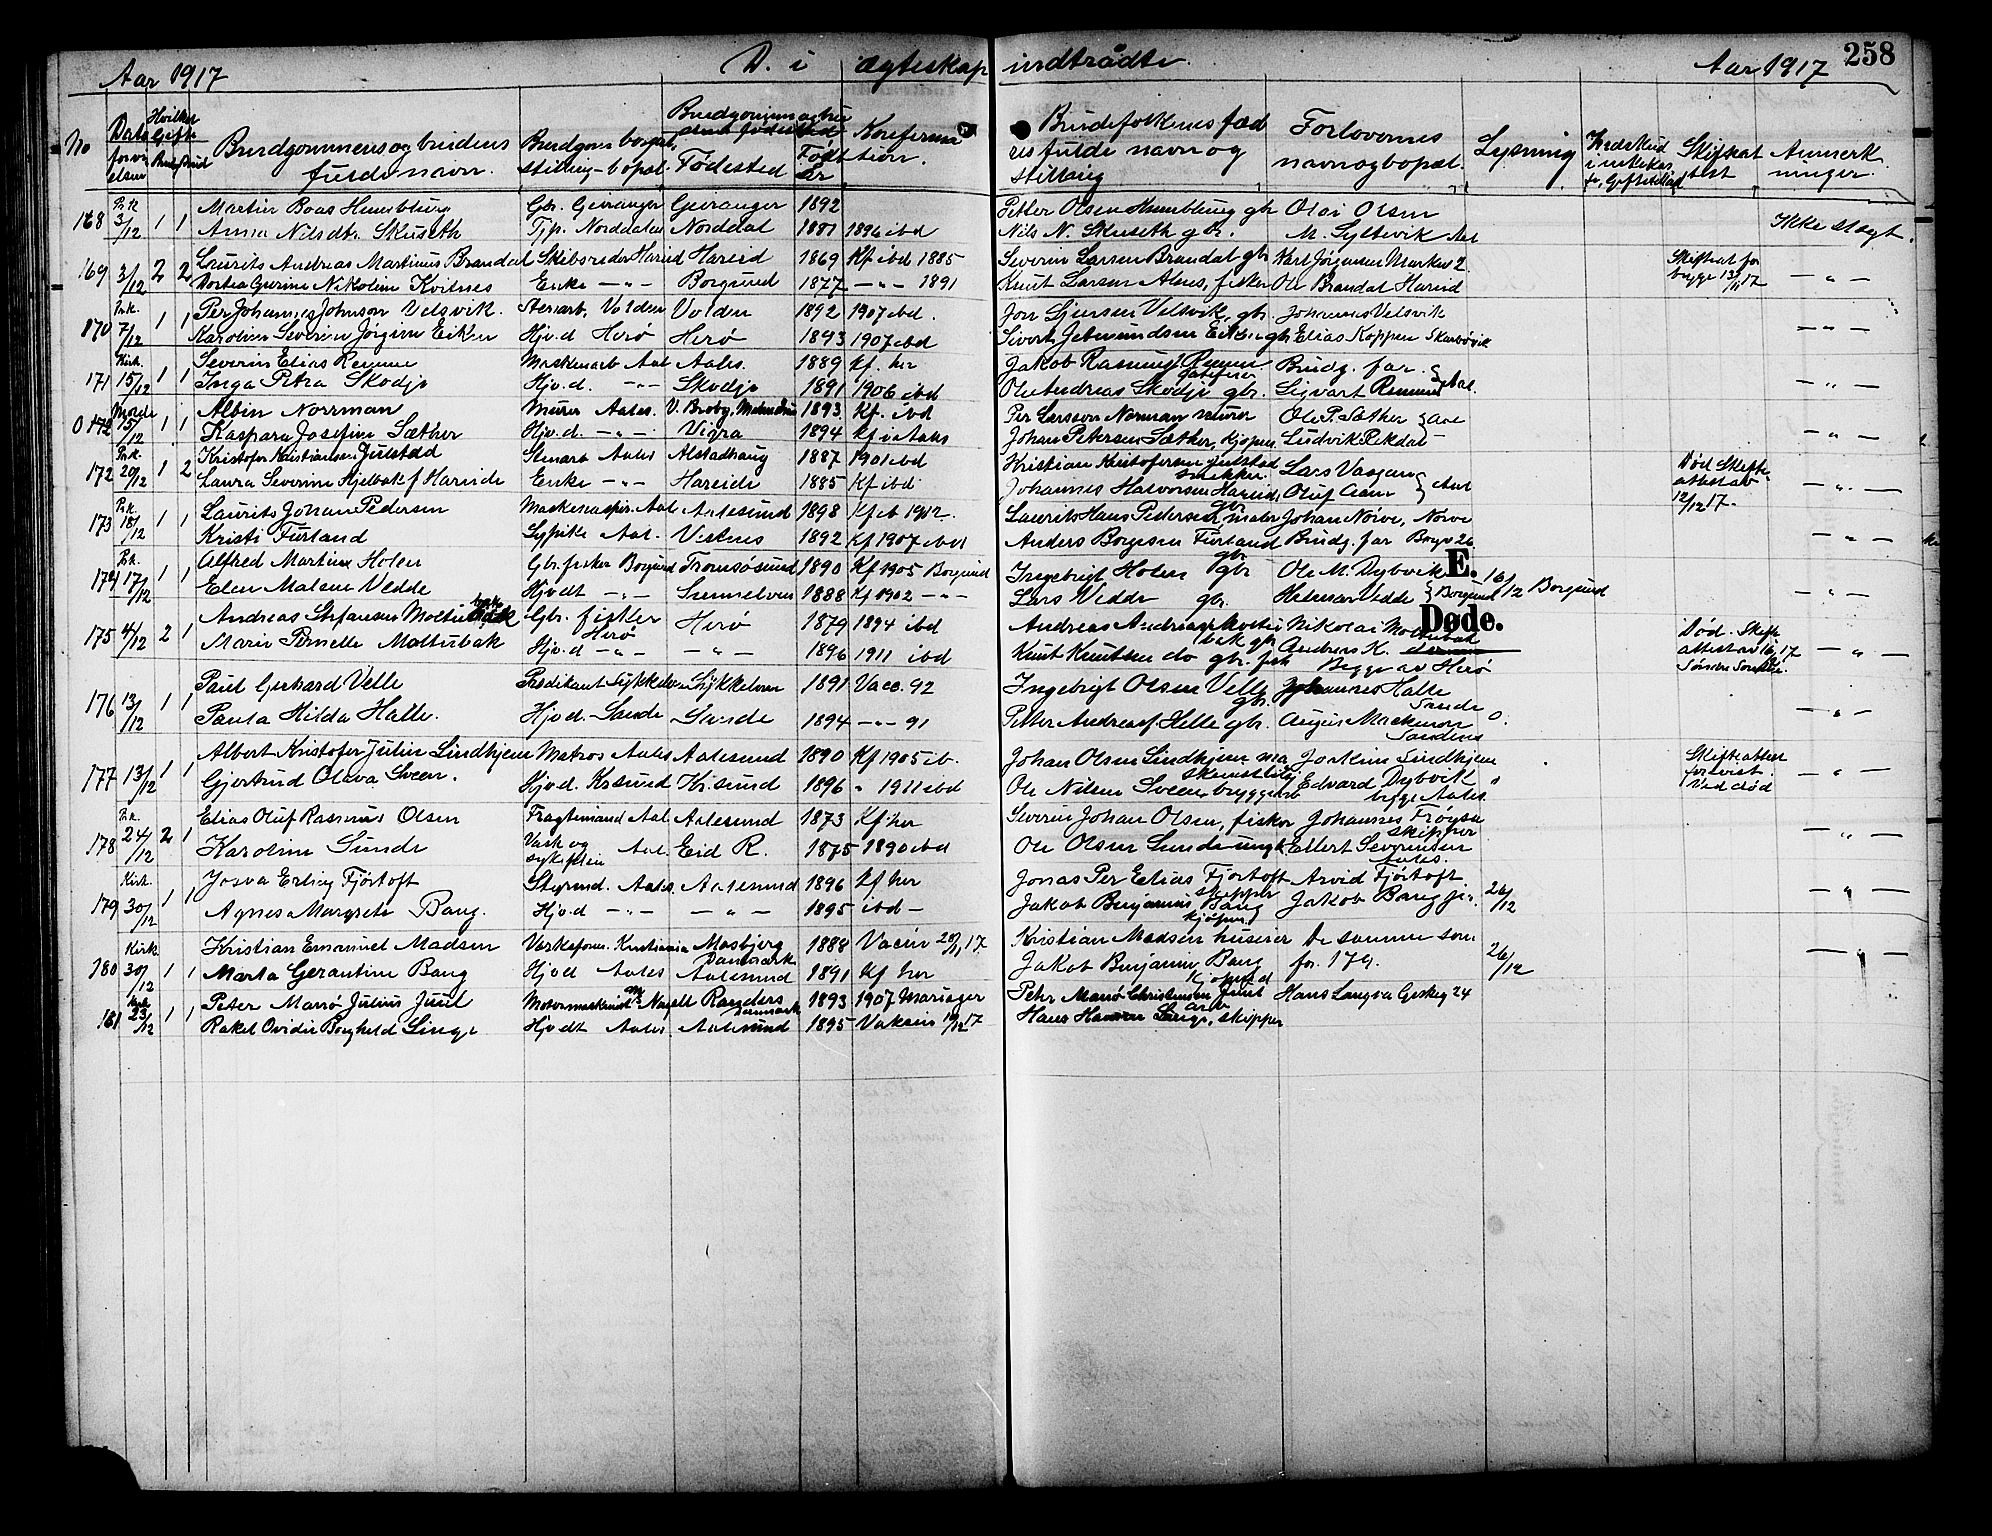 Aar 1917 D. i ægteskap indtrådte. Aar 1917 258
No Dato for vi elsen Hvilket Gifte Brudg Brud Brudgommens og brudens fulde navn. Brudgom borgerl. stilling – bopæl. Brudgommens og bru dens fødested Fødested Født år Konfirma tion. Brudefolkenes fæd res fulde navn og stilling Forlovernes navn og bopæl. Lysning Skifteat test Anmerk ninger.
168 3/12 1 1 Martin Boas Humblung Gbr. Geiranger Geiranger 1892 Petter Olsen Humblung gbr Olai Olsen
Anna Nilsdtr. Skuseth Tjp. Norddalen Norddal 1881 1896 ibd Nils N. Skuseth gbr. M. Syltevik Aal Ikke slegt.
169 3/12 2 2 Laurits Andreas Martinus Brandal Skibsreder Hareid Hareid 1869 Kf ibd 1885 Severin Larsen Brandal gbr Karl Jørgensen Skifteat for
Dortea Gurine Nikoline Kvitnes Enke –„– Borgund 1877 –„– 1891 Knut Larsen Alnes, fisker Ole Brandal Hareid begge 13/11 17 –„–
Prk. Per Johannes Johnson Velsvik. Stenarb. Volden Volden 1892 1907 ibd. Jon Sjursen Velsvik, gbr. Johannes Velsvik
170 7/12 1 1 Karolin Severin Jørgine Eiken Hjv.d Herø Herø 1893 1907 ibd Sivert Jetmundsen Eiken gbr Elias Koppen Skarbøvik –„–
Kirk. Severin Elias Remme Maskinarb Aal Aales. 1889 Kf. her Jakob Rasmus Remme Brudg. far.
171 15/12 1 1 Inga Petra Skodje Hjv.d. –„– Skodje 1891 1906 ibd Ole Andreas Skodje gbr. Sigvart Remme Aal. –„–
0172 15/12 1 1 Albin Norrman Murer Aales. V. Broby, 1893 Kf. ibd Per Larsson Norman murer Ole P. Sæther Aal
Kaspara Josefine Sæther Hjv.d. –„– Vigra 1894 Kf i Aales Johan Petersen Sæther, Ludvik Rekdal –„–
Prk. Kristofer Kristiansen Julstad Stenarb Aales Alstadhaug 1887 1901 ibd Kristian Kristofersen Julstad snekker Lars Død Skifte
172 20/12 1 2 Laura Severine Hjelbak f Hareide Enke –„– Hareide 1885 Kf ibd Johannes Halvorsen Hareide, gbr. Oluf Aal attest av 12/12 17. –„–
Prk. Laurits Johan Pedersen Maskinaspir. Aal Aalesund 1898 Kf ib 1912. Laurits Hans Pedersen, maler Johan Nørve, Nørve
173 18/12 1 1 Kristi Furland Sypike Aal. Vestnes 1892 Kf 1907 ibd Anders Borgesen Furland gbr Brudg. far –„–
Prk. Alfred Martin Holen Gbr. fisker Borgund Tromsøsund 1890 Kf 1905 Borgund Ingebrigt Holen gbr Ole M. Dybvik E. 16/12 Borgund
174 17/12 1 1 Elen Malene Vedde Hjvdt –„– Sunnelven 1888 Kf 1902 –„– Lars Vedde gbr. Helmer Vedde Borgund –„–
Døde.
Andreas Stefansen Moltubak Gbr. fisker Herø Herø 1879 1894 ibd Andreas Andreas Moltu bak gbr Nikolai Moltubak Død. Skifte
175 4/12 2 1 Marie Pernelle Moltubak Hjv.d –„– –„– 1896 1911 ibd Knut Knutsen do gbr. fisk Andreas K. Begge av Herø attest av 17 –„–
Paul Gerhard Velle Predikant Sykkelven Sykkelven 1891 Vacc. 92 Ingebrigt Olsen Velle gbr. Johannes Halle Sande
176 13/12 1 1 Paula Hilda Halle. Hjv.d. Sande Sande 1894 –„– 91 Petter Andreas Helle gbr. –„–
Albert Kristofer Julin Lindhjem Matros Aales Aalesund 1890 Kf 1905 ib. Johan Olsen Lindhjem Lindhjem Skifteattest
177 13/12 1 1 Gjertrud Olava Sveen. Hjv.d. Krsund Kr.sund 1896 „ 1911 ibd Ole Nilsen Sveen, bryggearb Edvard Dybvik begge Aales. forevist. Ved død –„–
Prk. Elias Oluf Rasmus Olsen Fragtemand Aal Aalesund 1873 Kf her Severin Johan Olsen, fisker Johannes Frøysa skipper
178 24/12 2 1 Karoline Sunde Vask og Aal. Eid R. 1875 1890 ibd Ole Olsen Sunde ungk. Ellert Severinsen Aales. –„–
Kirk. Josva Erling Fjørtoft Styrmd. Aales Aalesund 1896 Kf her Jonas Per Elias Fjørtoft skipper Arvid Fjørtoft
179 30/12 1 1 Agnes Margrete Bang. Hjv.d –„– –„– 1895 ibd – Jakob Benjamin Bang kjøpm. Jakob Bang jr. 26/12 –„–
Kirk Kristian Emanuel Madsen Verksform. Kristiania Mosbjerg Danmark 1888 Vacin 28/11 17. Kristian Madsen huseier De samme som
180 30/12 1 1 Marta Gerantine Bang Hjv.d Aales Aalesund 1891 Kf her Jakob Benjamin Bang kjøpmd for 179. 26/12 –„–
Kirk Peter Marrø Julius Juul Motormaskinist Randers Danmark 1893 1907 Mariager Pehr Marrø Christensen Juul arb Hans Langva
181 23/12 1 1 Rakel Ovidie Borghild Linge Hjvdt Aales Aalesund 1895 Vaksin 19/12 17 Hans Linge, skipper